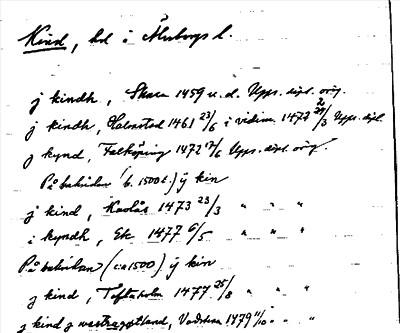 Kind, hd i Älvborgs l.
j kindh, Skara 1459 u. d. Upps. dipl. orig.
j kindh, Halmstad 1461 23/6 i vidim. 1472 29/3 Upps. dipl.
j kynd, Falköping 1472 17/6 Upps. dipl. orig.
På baksidan (b. 1500 t.) ÿ kin
j kind, 1473 23/3 " " "
i kyndh, Ek 1477 6/5 " " "
På baksidan (ca 1500) ÿ kin
j kind, Toftaholm 1477 25/8 " " "
j kind j wæstragøtland, Vadstena 1479 11/10 " " "